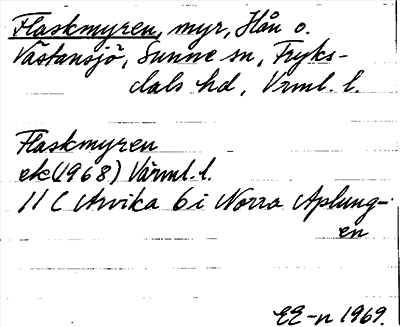 Flaskmyren, myr, Hån o.
Västansjö, Sunne sn, Fryks-
dals hd, Vrml. l.
Flaskmyren
ek (1968) Värml. l.
11 C Arvika 6 i Norra Aplung-
en
EE-n 1969.